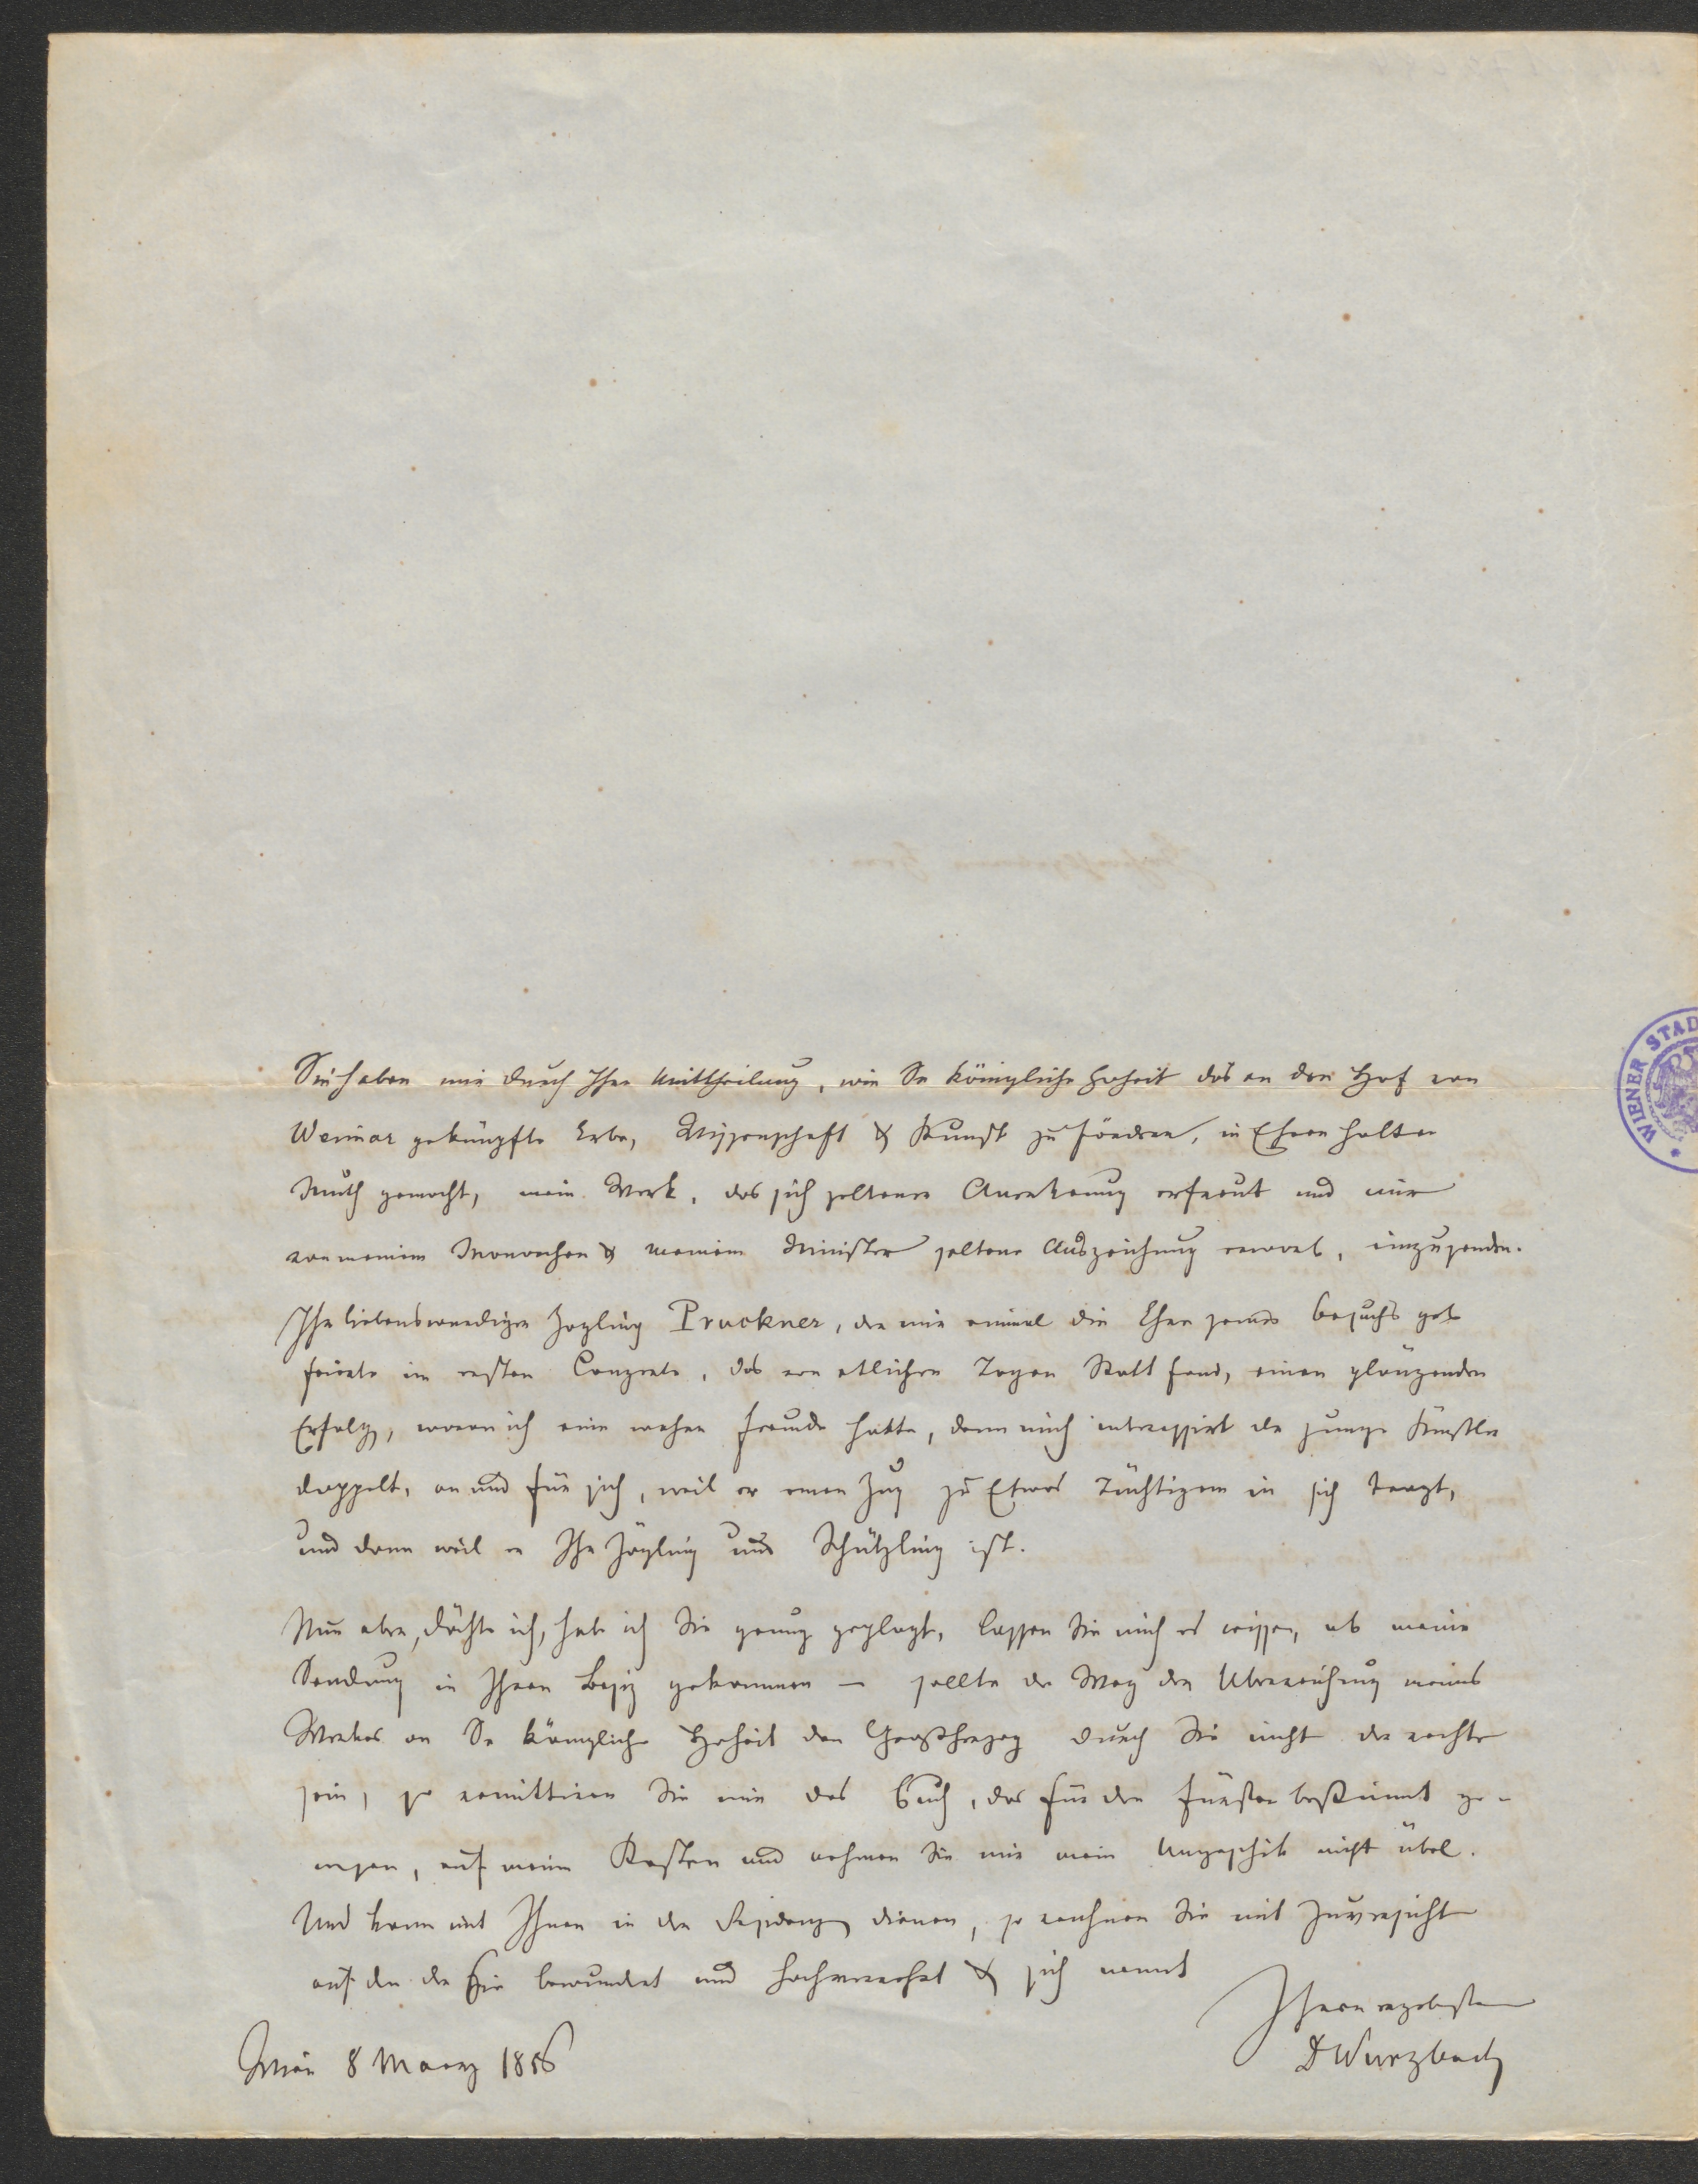 Sie haben mir durch Ihre Mittheilung, wie Se königliche Hoheit das an den Hof von
Weimar geknüpfte Erbe, Wissenschaft & Kunst zu fördern, in Ehren halten
Muth gemacht, mein Werk, das sich seltener Anerkennung erfreut und mir
von meinem Monarchen & meinem Minister seltene Auszeichnung erwarb, einzusenden.
Ihr liebenswürdiger Zögling Pruckner, der mir einmal die Ehre seines Besuchs gab
feierte im ersten Conzerte, das vor etlichen Tagen Statt fand, einen glänzenden
Erfolg, woran ich eine wahre Freude hatte, denn mich interessirt der junge Künstler
doppelt, an und für sich, weil er einen Zug zu Etwas Tüchtigem in sich traegt,
und dann weil er Ihr Zögling und Schützling ist.
Nun aber, dächte ich, habe ich Sie genug geplagt, lassen Sie mich es wissen, ob meine
Sendung in Ihren Besiz gekommen – sollte der Weg der Uberreichung meines
Werkes an Se königliche Hoheit den Großherzog durch Sie nicht der rechte
sein, so remittiren Sie mir das Buch, das für den Fürsten bestimmt ge-
wesen, auf meine Kosten und nehmen Sie mir mein Ungeschik nicht übel.
Und kann ich Ihnen in der Residenz dienen, so rechnen Sie mit Zuversicht
auf den der Sie bewundert und hochverehrt & sich nennt
Ihren ergebensten
Wien 8 Maerz 1856
D Wurzbach
WIENER STAD